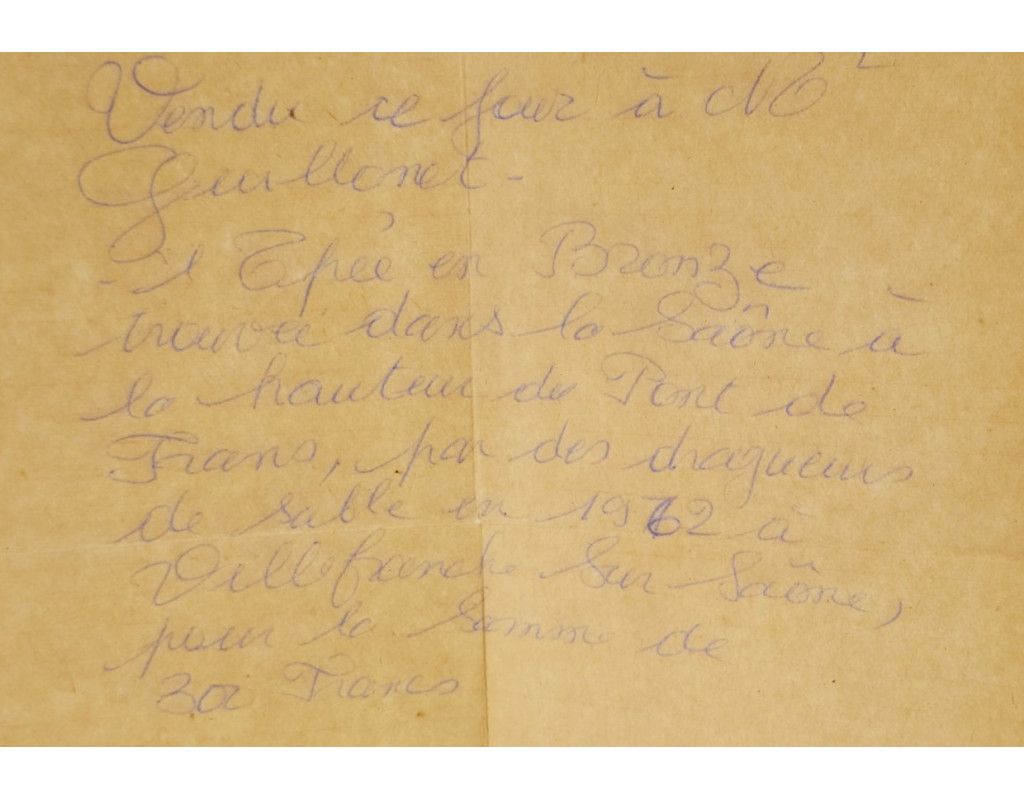 Vendu ce jour à Mr
Guillonet -
- 1 Epée en Bronze
trouvée dans la Saône à
la hauteur du Pont de
Frans, par des dragueurs
de sable en 1962 à
Villefranche Sur Saône,
pour la Somme de
300 Francs